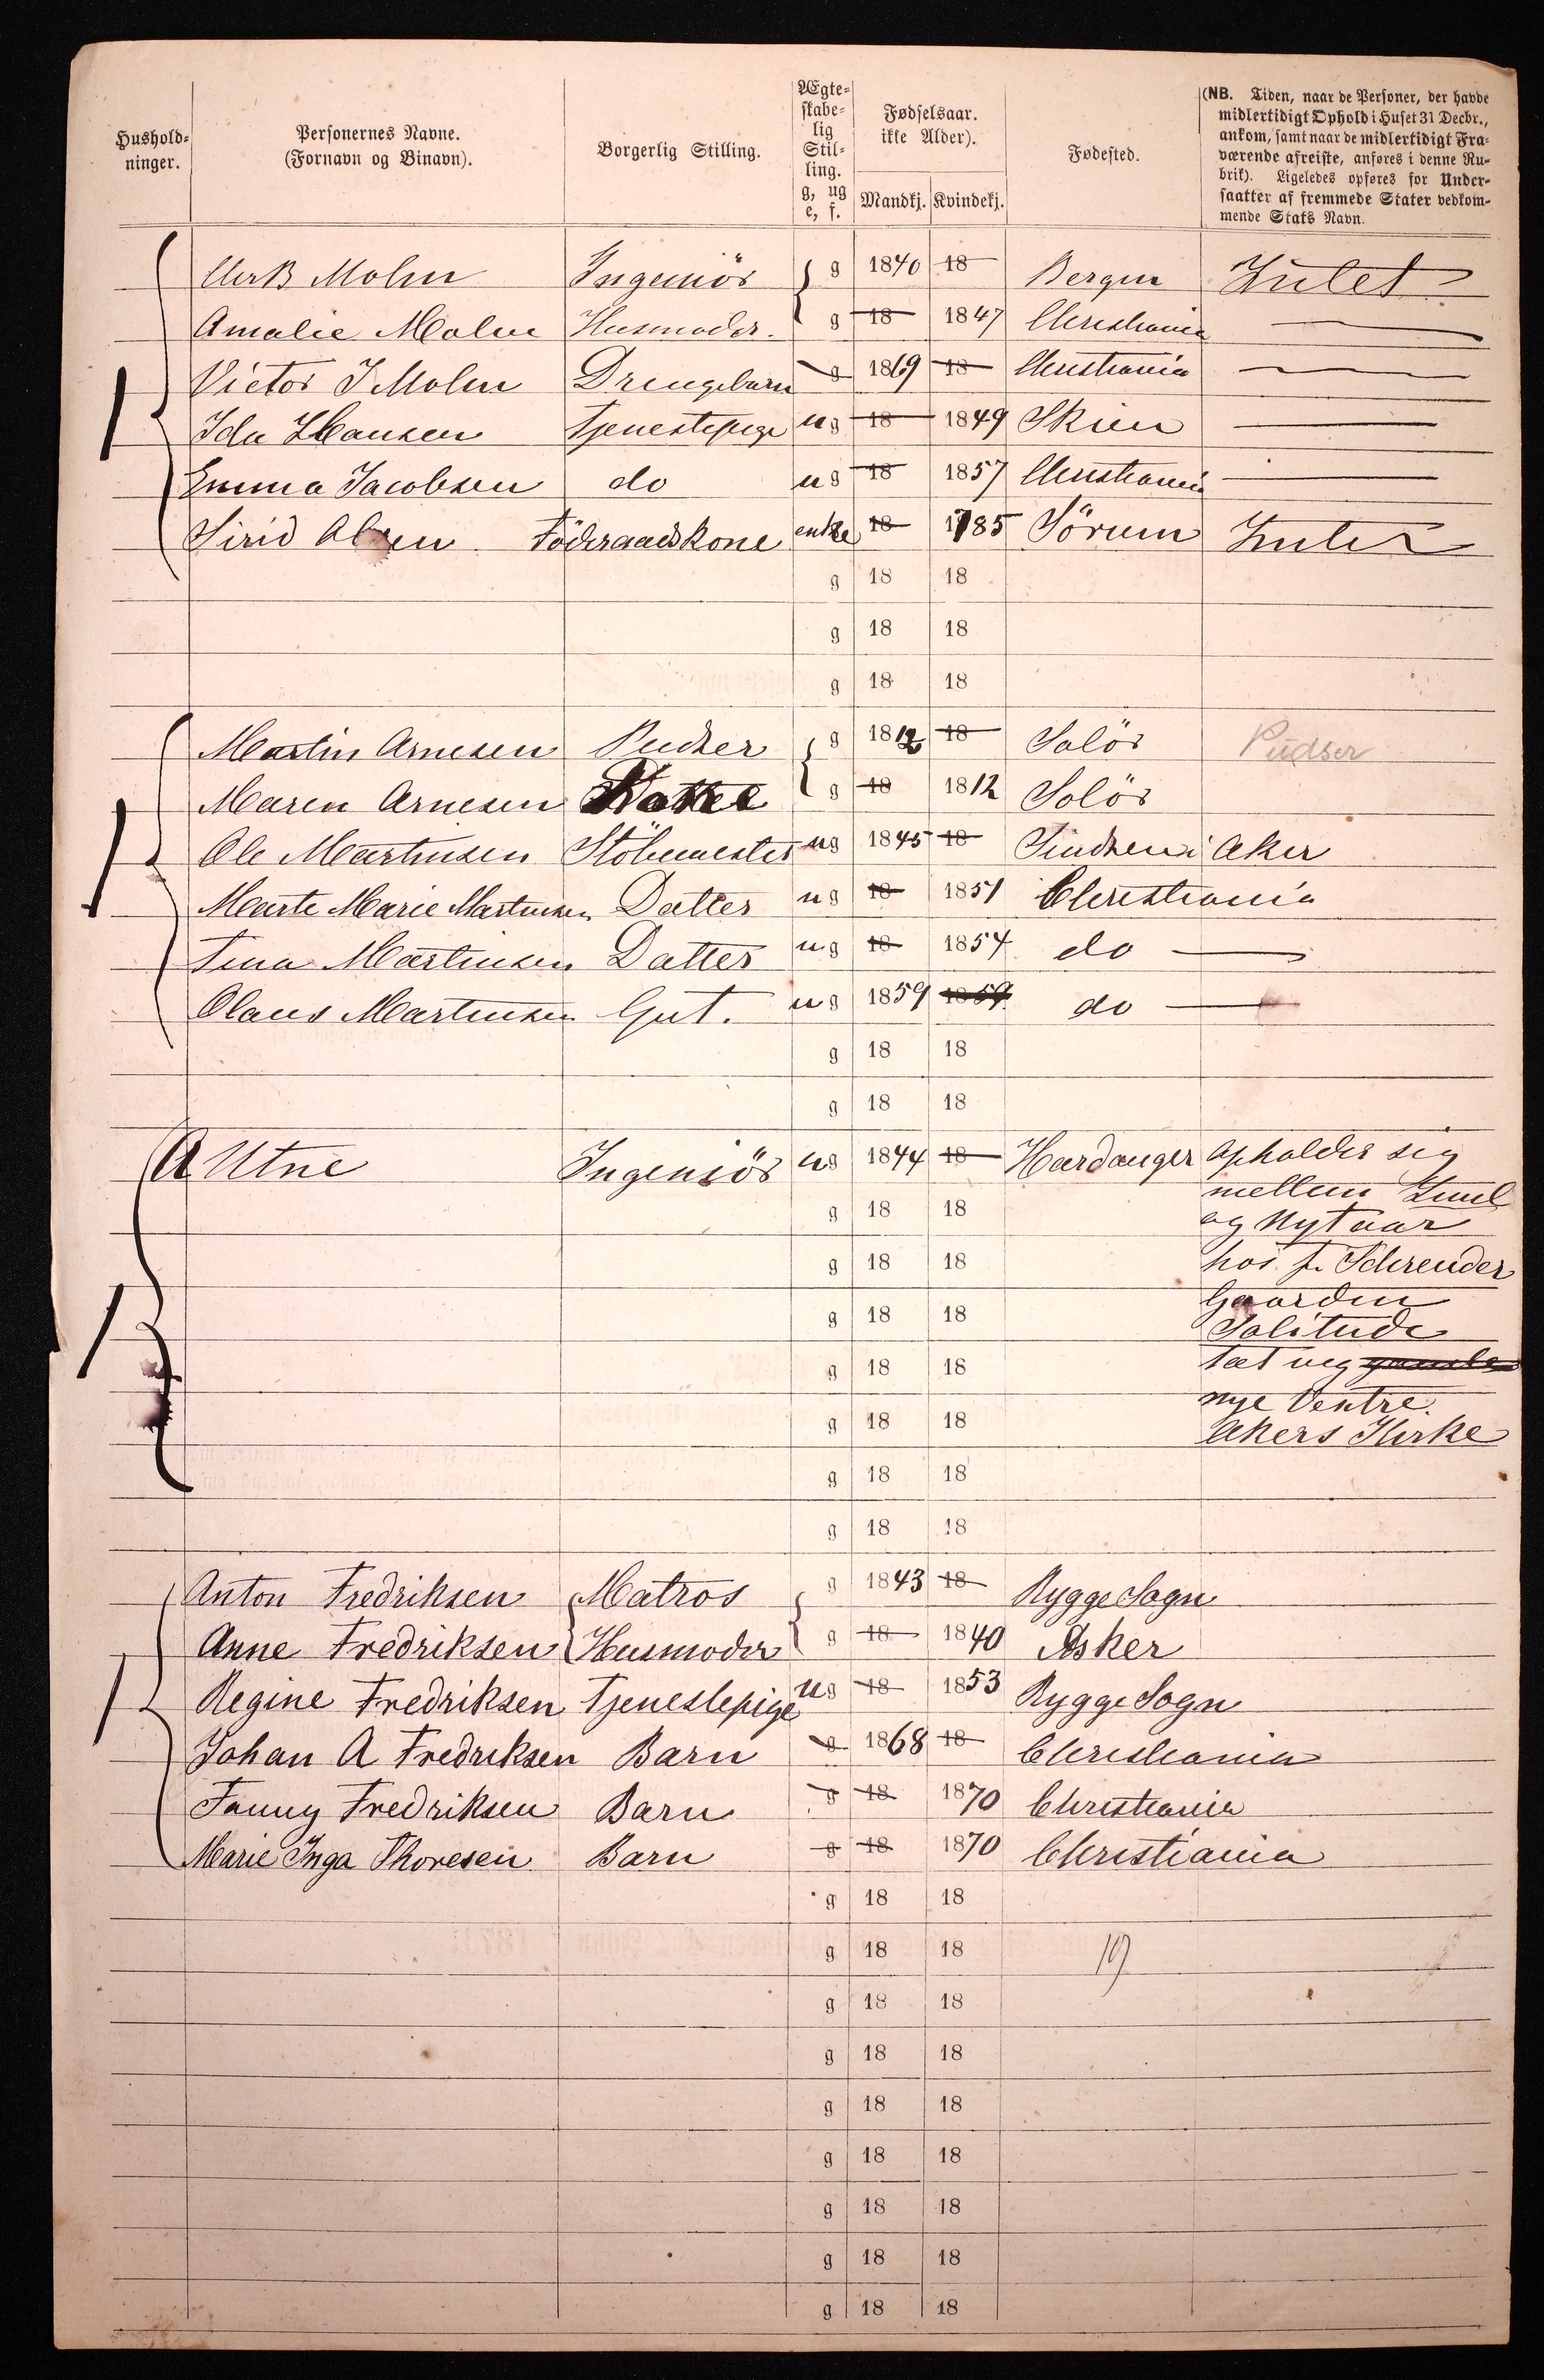 Hushold-
ninger.
Personernes Navne.
(Fornavn og Binavn).
Borgerlig Stilling.
Ægte-
skabe-
lig
Stil-
ling.
g, ug
e, f.
Fødselsaar.
ikke Alder).
Mandkj. Kvindekj.
Fødested.
(NB. Tiden, naar de Personer, der havde
midlertidigt Ophold i Huset 31 Decbr.,
ankom, samt naar de midlertidigt Fra-
værende afreiste, anføres i denne Ru-
brik). Ligeledes opføres for Under-
saatter af fremmede Stater vedkom-
mende Stats Navn.
Molm Ingeniör g 1840 18 Bergen Intet
Amalie Molm Husmoder. g 18 1847 Christiania
Victor J Molm Drengebarn g 1869 18 Christiania
1 Ida Hansen Tjenestepige ug 18 1849 Skien
Emma Jacobsen do ug 18 1857 Christiania
Sirid Olsen Föderaadskone enke 18 1785 Sörum Intet
g 18 18
g 18 18
g 18 18
Martin Arnesen Pudser g 1812 18 Solör Pudser
Maren Arnesen g 18 1812 Solör
1 Ole Martinsen Stöbemester ug 1845 18 Sindsen i Aker
Marte Marie Martinsen Datter ug 18 1851 Christiania
Tina Martinsen Datter ug 18 1854 do
Olaus Martinsen Gut. ug 1859 1859 do
g 18 18
g 18 18
A Utne Ingeniör ug 1844 18 Hardanger opholder sig
mellem Juul
g 18 18 og Nytaar
g 18 18 hos fr Schrender
Gaarden
1 g 18 18 Solitude
g 18 18 tæt veg gamle
nye Vestre
g 18 18 Akers Kirke
g 18 18
g 18 18
Anton Fredriksen Matros g 1843 18 Rygge Sogn
Anne Fredriksen Husmoder g 18 1840 Asker
1 Regine Fredriksen Tjenestepige ug 18 1853 Rygge Sogn
Johan A Fredriksen Barn g 1868 18 Christiania
Fanny Fredriksen Barn g 18 1870 Christiania
Marie Inga Thoresen Barn g 18 1870 Christiania
g 18 18
g 18 18 19
g 18 18
g 18 18
g 18 18
g 18 18
g 18 18
g 18 18
g 18 18